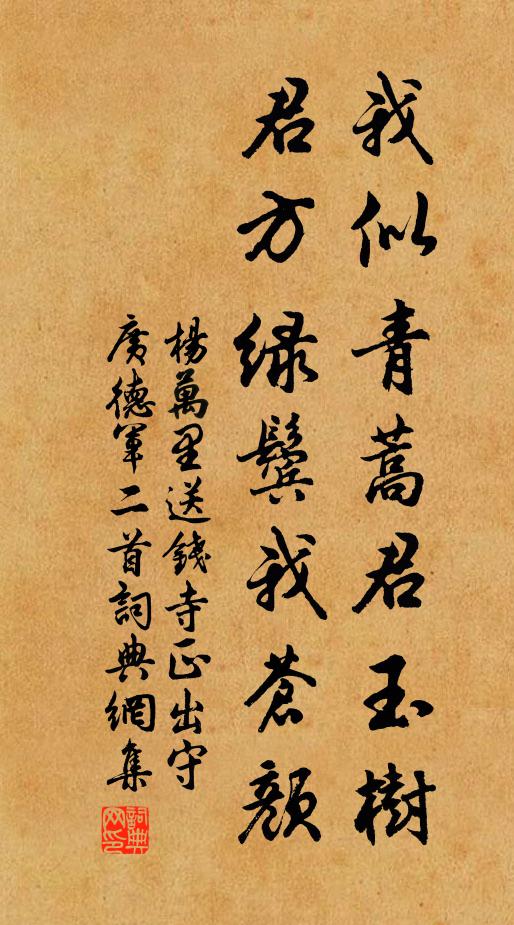 我似青蒿君玉樹
君方緑鬢我蒼顔
楊萬里送錢寺正出守
廣德軍二首詞典網集
詞典
网印